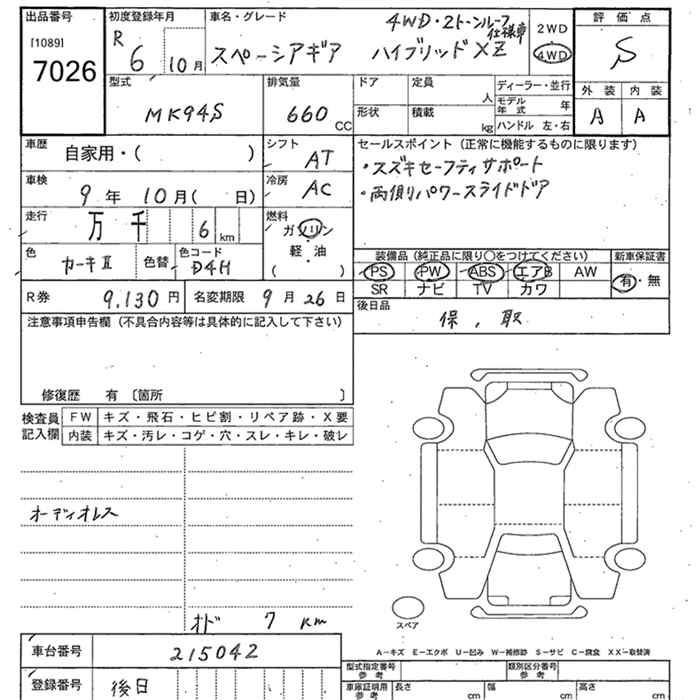 出品番号 初度登録年月 車名・グレード 4WD・2トーンルーフ仕様車 2WD 評価点
[1089] R 6 10月 スペーシアギア ハイブリッドXZ 4WD S
7026
型式 排気量 ドア 定員 人 ディーラー・並行 外装 内装
MK94S 660 CC 形状 積載 kg モデル年式 年 A A
ハンドル 左・右
車歴 自家用・( ) シフト AT セールスポイント(正常に機能するものに限ります)
・スズキセーフティサポート
車検 9年 10月( 日) 冷房 AC ・両側パワースライドドア
走行 万 千 6 km 燃料 ガソリン
軽・油
( )
色 カーキII 色替 色コード D4H
装備品(純正品に限り○をつけてください) 新車保証書
PS PW ABS エアB AW 有・無
SR ナビ TV カワ
R券 9,130円 名変期限 9月26日 後日品
保、取
注意事項申告欄(不具合内容等は具体的に記入して下さい)
修復歴 有〔箇所 〕
検査員記入欄 FW キズ・飛石・ヒビ割・リペア跡・X要
内装 キズ・汚レ・コゲ・穴・スレ・キレ・破レ
オーディオレス
スペア
オド 7 km
A−キズ E−エクボ U−凹み W−補修跡 S−サビ C−腐食 XX−取替済
車台番号 215042 型式指定番号 参考 類別区分番号 参考
登録番号 後日 車庫証明用 参考 長さ cm 幅 cm 高さ cm